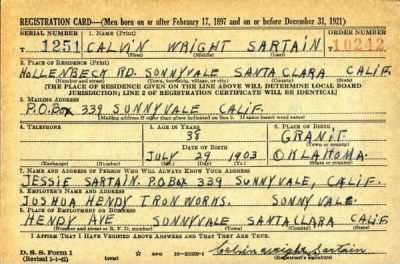 REGISTRATION CARD—(Men born on or after February 17, 1897 and on or before December 31, 1921)
SERIAL NUMBER 1. NAME (Print) ORDER NUMBER
T 1251 CALVIN WRIGHT SARTAIN 10242
(First) (Middle) (Last)
2. PLACE OF RESIDENCE (Print)
HOLLENBECK RD. SUNNYVALE SANTA CLARA CALIF.
(Number and street) (Town, township, village, or city) (County) (State)
[THE PLACE OF RESIDENCE GIVEN ON THE LINE ABOVE WILL DETERMINE LOCAL BOARD
JURISDICTION; LINE 2 OF REGISTRATION CERTIFICATE WILL BE IDENTICAL]
3. MAILING ADDRESS
P.O. BOX 339 SUNNYVALE CALIF.
[Mailing address if other than place indicated on line 2. If same insert word same]
4. TELEPHONE 5. AGE IN YEARS 6. PLACE OF BIRTH
38 GRANIT
DATE OF BIRTH (Town or county)
JULY 29 1903 OKLAHOMA
(Exchange) (Number) (Mo.) (Day) (Yr.) (State or country)
7. NAME AND ADDRESS OF PERSON WHO WILL ALWAYS KNOW YOUR ADDRESS
JESSIE SARTAIN. P.O BOX 339 SUNNYVALE, CALIF.
8. EMPLOYER'S NAME AND ADDRESS
JOSHUA HENDY IRON WORKS. SUNNYVALE
9. PLACE OF EMPLOYMENT OR BUSINESS
HENDY AVE SUNNYVALE SANTA CLARA CALIF
(Number and street or R. F. D. number) (Town) (County) (State)
I AFFIRM THAT I HAVE VERIFIED ABOVE ANSWERS AND THAT THEY ARE TRUE.
D. S. S. Form 1
(Revised 1-1-42) (over) Calvin Wright Sartain